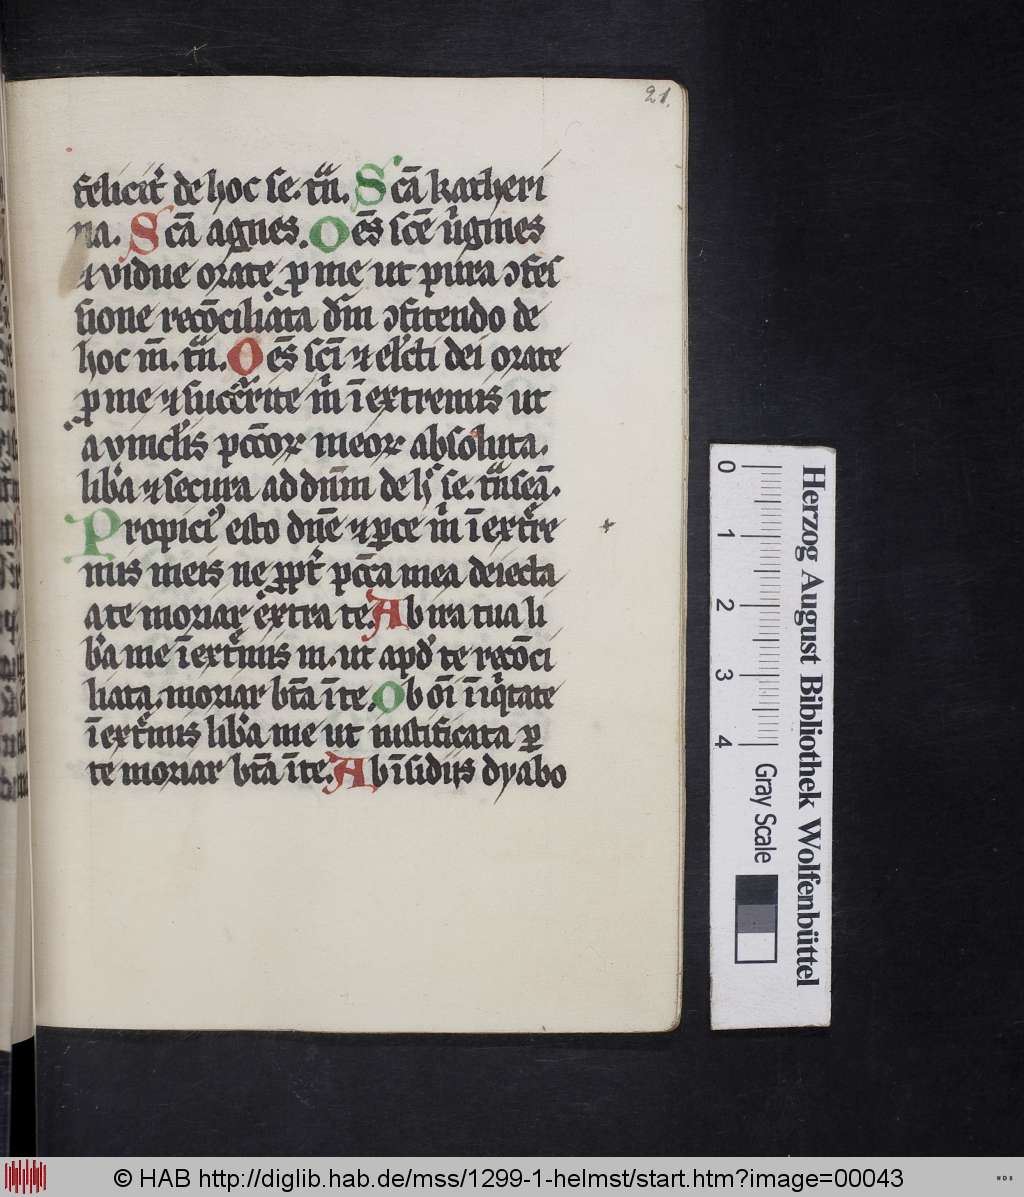 21.
felicit᷑ de hoc se. tͣn̄. Scā katheri
na. Scā agnes. Oēs scē v̓gines
⁊ vidue orate ꝓ me ut pura ↄfes
sione recōciliata dm̄ ↄfitendo de
hoc m̄. tͣn̄. Oēs scī ⁊ elc̄ti dei orate
ꝓ me ⁊ succ̄rite m̓ ī extremis ut
a vinclis pctōꝝ meoꝝ absoluta.
lib̓a ⁊ secura ad dnm̄ de h̓ se. tͣn̄seā.
Propici᷒ esto dnē ⁊ ꝑce m̓ ī extre
mis meis ne ꝓpt᷑ pctā mea deiecta
a te moriar extra te. Ab ira tua li
b̓a me ī extͤmis m. ut apd̓ te recōci
liata. moriar btā ī te. Ob oī īiq̓tate
ī extͤmis lib̓a me ut iustificata ꝑ
te moriar btā ī te. Ab īsidiis dyabo
Herzog August Bibliothek Wolfenbüttel
0 1 2 3 4
Gray Scale
© HAB http://diglib.hab.de/mss/1299-1-helmst/start.htm?image=00043